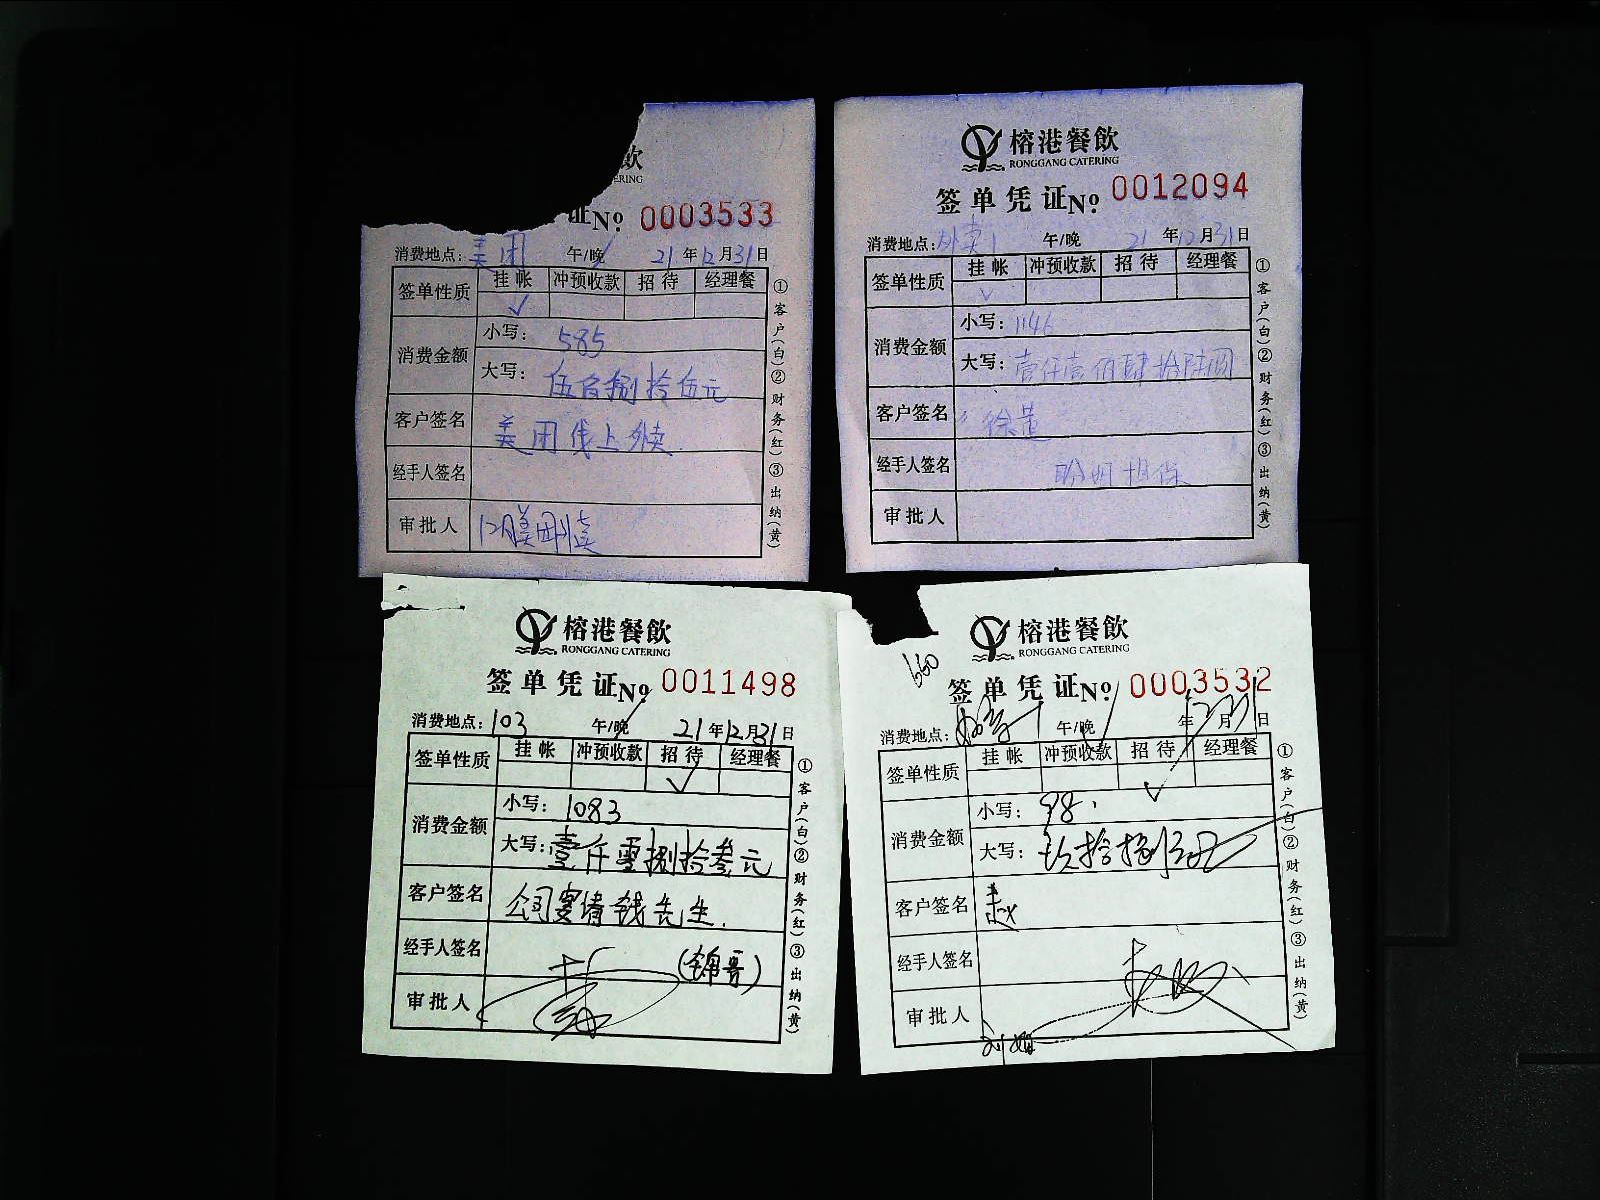 飲
ERING
证No. 0003533
消费地点: 美团 午/晚 21年12月31日
签单性质 挂帐 冲预收款 招待 经理餐
✓
消费金额 小写: 585
大写: 伍佰捌拾伍元
客户签名 美团线上外卖.
经手人签名
审批人 12月美团
①客户(白)②财务(红)③出纳(黄)
榕港餐飲
RONGGANG CATERING
签单凭证No. 0012094
消费地点: 外卖1 午/晚 21年12月31日
签单性质 挂帐 冲预收款 招待 经理餐
✓
消费金额 小写: 1146
大写: 壹仟壹佰肆拾陆圆
客户签名 徐
经手人签名 担保
审批人
①客户(白)②财务(红)③出纳(黄)
榕港餐飲
RONGGANG CATERING
签单凭证No. 0011498
消费地点: 103 午/晚 21年12月31日
签单性质 挂帐 冲预收款 招待 经理餐
✓
消费金额 小写: 1083
大写: 壹仟零捌拾叁元
客户签名 公司宴请钱先生.
经手人签名 (锦哥)
审批人
①客户(白)②财务(红)③出纳(黄)
榕港餐飲
RONGGANG CATERING
660
签单凭证No. 0003532
消费地点: 午/晚 年12月31日
签单性质 挂帐 冲预收款 招待 经理餐
✓
消费金额 小写: 98.
大写: 玖拾捌元
客户签名 赵
经手人签名
审批人
①客户(白)②财务(红)③出纳(黄)